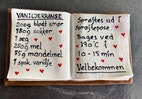 VANILJEKRANSE
200g blødt smør
180g sukker
1 æg
250g mel
75g mandelmel
1 spsk. vanilje
Sprøjtes ud i
sprøjtepose
Bages ved
190°C i
10-15 min
Velbekommen